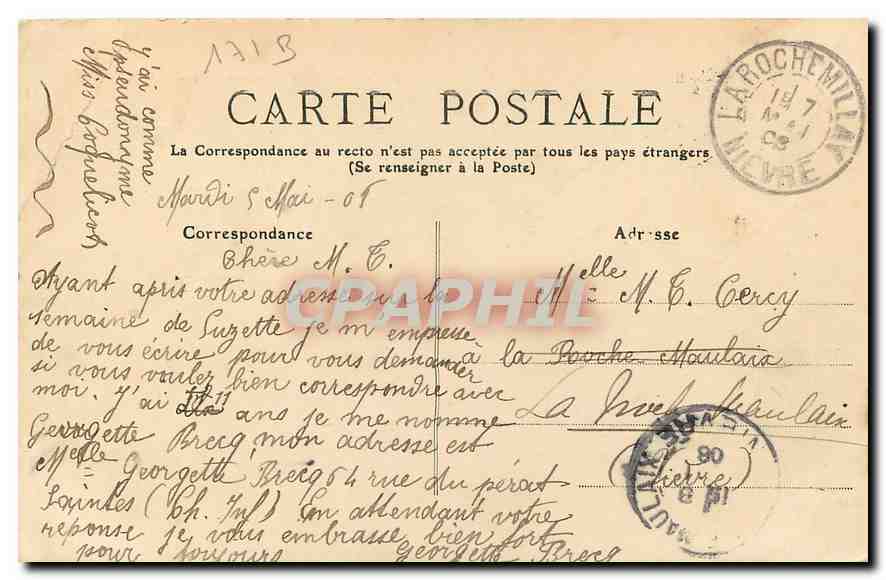 171 B
y'ai comme
pseudonyme
Miss Coquelicot
CARTE POSTALE
La Correspondance au recto n'est pas acceptée par tous les pays étrangers
(Se renseigner à la Poste)
LAROCHEMILLAY
NIEVRE
Mardi 5 Mai - 08
Correspondance
Chère M. T.
Ayant apris votre adresse sur la
semaine de Suzette je m'empresse
de vous écrire pour vous demander
si vous voulez bien correspondre avec
moi. Y'ai 11 ans je me nomme
Georgette Brecq mon adresse est
Melle Georgette Brecq 64 rue du pérat
Saintes (Ch. Inf) En attendant votre
réponse je vous embrasse bien fort
pour toujours Georgette Brecq
Adresse
Melle M. T. Cercy
à la Roche Maulaix
La Maulaix
(Nièvre)
08
CPAPHIL